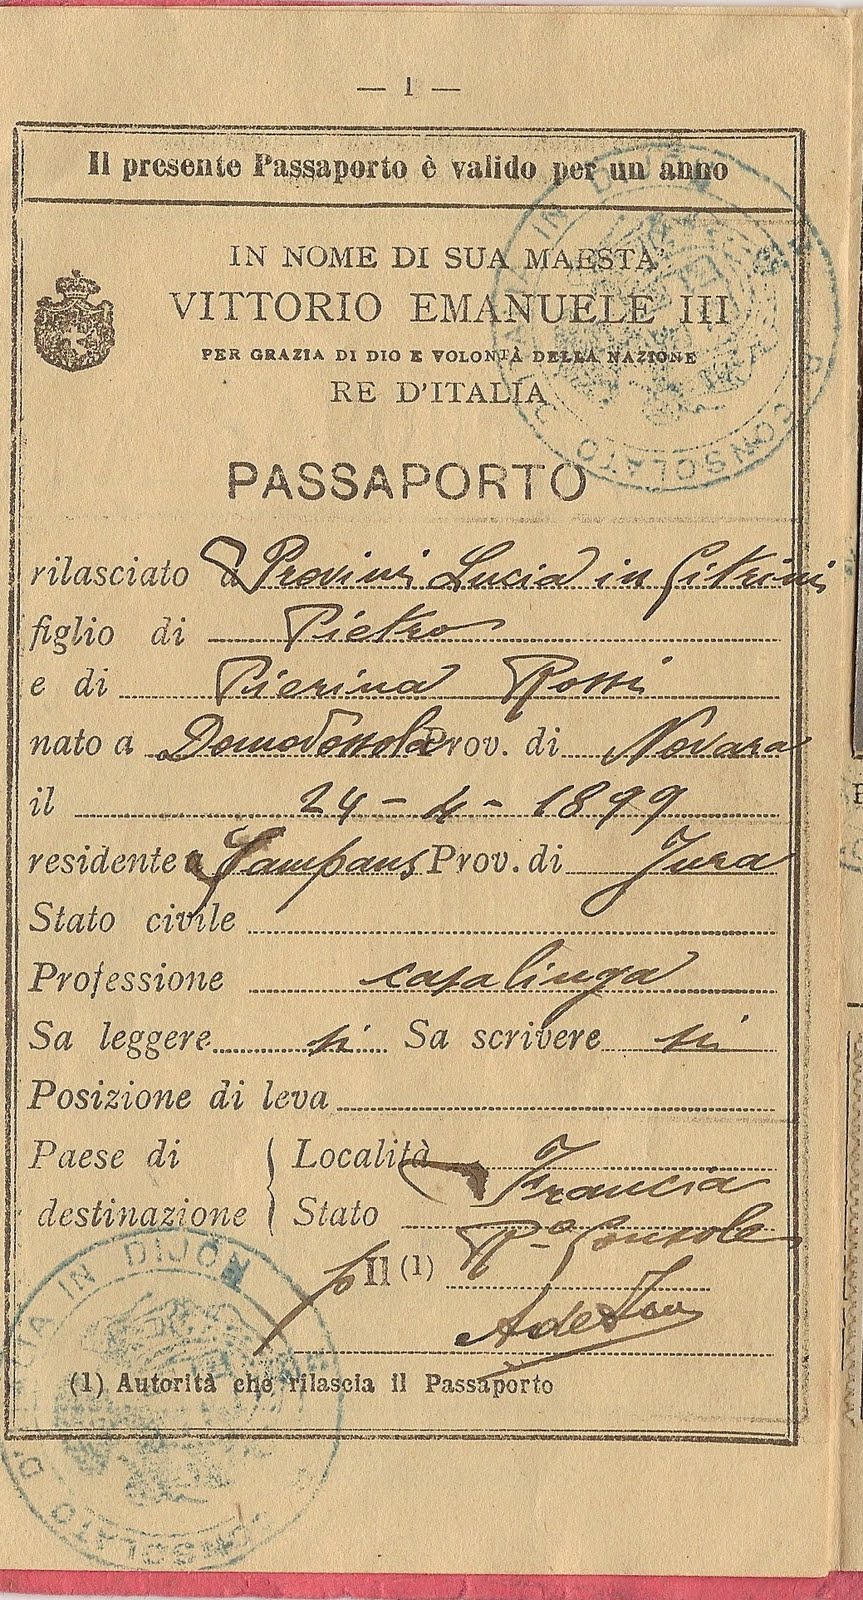 — 1 —
Il presente Passaporto è valido per un anno
IN NOME DI SUA MAESTÀ
VITTORIO EMANUELE III
PER GRAZIA DI DIO E VOLONTÀ DELLA NAZIONE
RE D'ITALIA
R. CONSOLATO D'ITALIA IN DIJON
PASSAPORTO
rilasciato a Provini Lucia in
figlio di Pietro
e di Pierina Rossi
nato a Domodossola Prov. di Novara
il 24 - 4 - 1899
residente a Sampans Prov. di Jura
Stato civile
Professione casalinga
Sa leggere si Sa scrivere si
Posizione di leva
Paese di destinazione
Località
Stato Francia
p Il (1) R.º Console
(1) Autorità che rilascia il Passaporto
CONSOLATO D'ITALIA IN DIJON